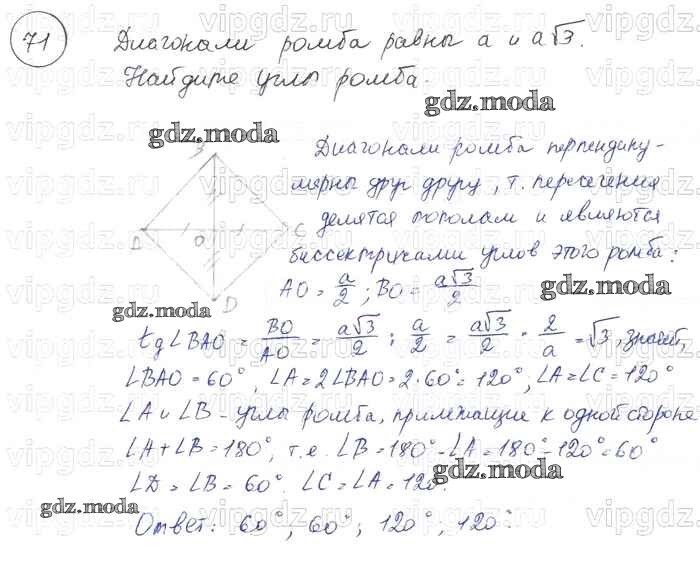 71 Диагонали ромба равны a и a√3.
Найдите углы ромба.
gdz.moda
gdz.moda
Диагонали ромба перпендику-
лярны друг другу, т. пересечения
делятся пополам и являются
биссектрисами углов этого ромба:
B
D O C
D
AO = a/2 ; BO = a√3/2
gdz.moda
gdz.moda
tg∠BAO = BO/AO = a√3/2 : a/2 = a√3/2 · 2/a = √3, значит,
∠BAO = 60°, ∠A = 2∠BAO = 2·60° = 120°, ∠A = ∠C = 120°
∠A и ∠B - углы ромба, прилежащие к одной стороне
∠A + ∠B = 180°, т.е. ∠B = 180° - ∠A = 180° - 120° = 60°
∠D = ∠B = 60°. ∠C = ∠A = 120°
gdz.moda
gdz.moda
Ответ: 60°; 60°; 120°; 120°.
gdz.moda